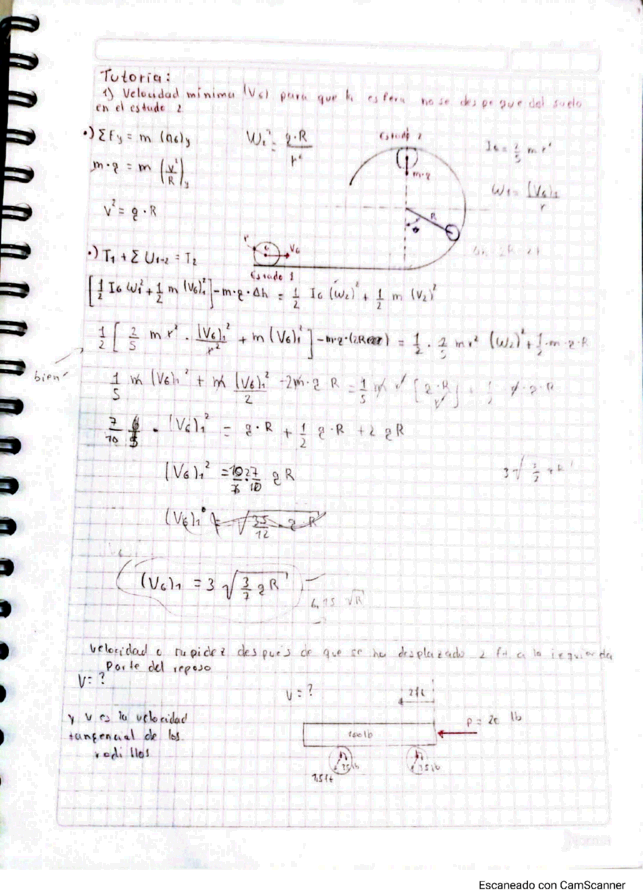 Tutoria:
1) Velocidad minima (V_G) para que la esfera no se despegue del suelo
en el estado 2
•) ΣF_y = m (a_G)_y
W_2^2 = g·R / r^2
Estado 2
I_G = 2/5 m r^2
m·g = m (v^2/R)_y
m·g
W_1 = (V_G)_1 / r
R
v^2 = g·R
•) T_1 + Σ U_1-2 = T_2
r
V_G
Estado 1
[1/2 I_G W_1^2 + 1/2 m (V_G)_1^2] - m·g·Δh = 1/2 I_G (W_2)^2 + 1/2 m (V_2)^2
1/2 [2/5 m r^2 · (V_G)_1^2 / r^2 + m (V_G)_1^2] - m·g·(2R = 1/2 · 2/5 m r^2 (W_2)^2 + 1/2 · m·g·R
bien
1/5 m (V_G)_1^2 + m (V_G)_1^2 / 2 - 2m·g R = 1/5 m r^2 [g·R / r^2] + 1/2 m·g·R
7/10 · (V_G)_1^2 = g·R + 1/2 g·R + 2 g R
(V_G)_1^2 = 27 g R
(V_G)_1 = √(35/12 · g R)
(V_G)_1 = 3 √(3/7 g R)
√R
velocidad o rapidez después de que se ha desplazado 2 ft a la izquierda
Parte del reposo
V = ?
V = ?
2ft
y v es la velocidad
tangencial de los
rodillos
P = 20 lb
100lb
1.5ft